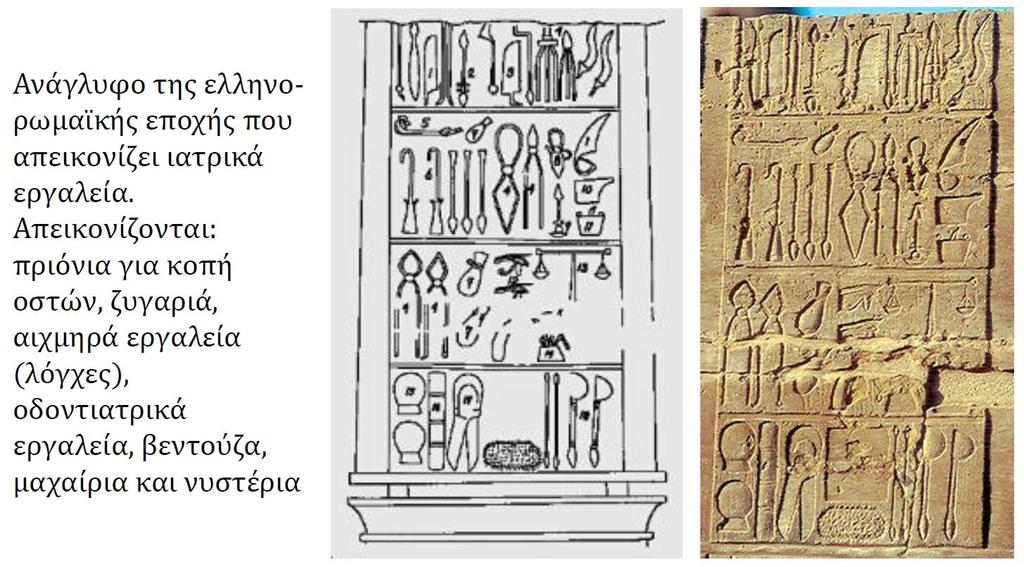 Ανάγλυφο της ελληνο-
ρωμαϊκής εποχής που
απεικονίζει ιατρικά
εργαλεία.
Απεικονίζονται:
πριόνια για κοπή
οστών, ζυγαριά,
αιχμηρά εργαλεία
(λόγχες),
οδοντιατρικά
εργαλεία, βεντούζα,
μαχαίρια και νυστέρια
1 2 3
5 7
6 4 4 8 1
10
9 11
4 4 7 13
7
14
15 16 17 18